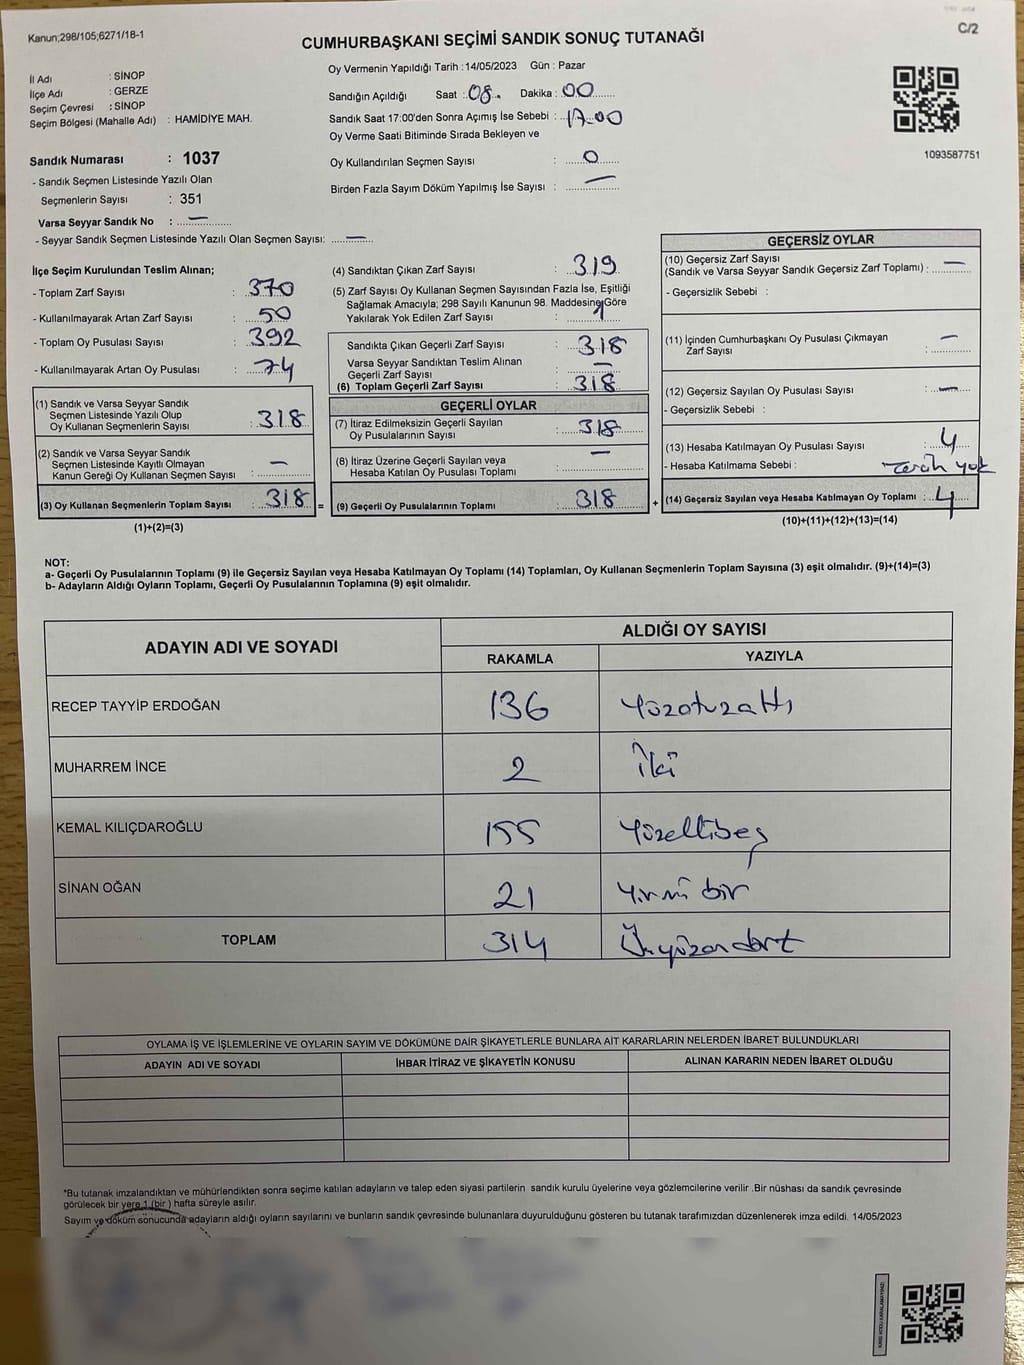 C/2
Kanun;298/105;6271/18-1
CUMHURBAŞKANI SEÇİMİ SANDIK SONUÇ TUTANAĞI
İl Adı : SİNOP
İlçe Adı : GERZE
Seçim Çevresi : SİNOP
Seçim Bölgesi (Mahalle Adı) : HAMİDİYE MAH.
Sandık Numarası : 1037
- Sandık Seçmen Listesinde Yazılı Olan
Seçmenlerin Sayısı : 351
Varsa Seyyar Sandık No : —
- Seyyar Sandık Seçmen Listesinde Yazılı Olan Seçmen Sayısı: —
Oy Vermenin Yapıldığı Tarih :14/05/2023 Gün : Pazar
Sandığın Açıldığı Saat : 08. Dakika : 00
Sandık Saat 17:00'den Sonra Açımış İse Sebebi : 17.00
Oy Verme Saati Bitiminde Sırada Bekleyen ve
Oy Kullandırılan Seçmen Sayısı : 0
Birden Fazla Sayım Döküm Yapılmış İse Sayısı : —
1093587751
İlçe Seçim Kurulundan Teslim Alınan;
- Toplam Zarf Sayısı : 370
- Kullanılmayarak Artan Zarf Sayısı : 50
- Toplam Oy Pusulası Sayısı : 392
- Kullanılmayarak Artan Oy Pusulası : 74
(1) Sandık ve Varsa Seyyar Sandık
Seçmen Listesinde Yazılı Olup
Oy Kullanan Seçmenlerin Sayısı : 318
(2) Sandık ve Varsa Seyyar Sandık
Seçmen Listesinde Kayıtlı Olmayan
Kanun Gereği Oy Kullanan Seçmen Sayısı : —
(3) Oy Kullanan Seçmenlerin Toplam Sayısı : 318 =
(1)+(2)=(3)
(4) Sandıktan Çıkan Zarf Sayısı : 319
(5) Zarf Sayısı Oy Kullanan Seçmen Sayısından Fazla İse, Eşitliği
Sağlamak Amacıyla; 298 Sayılı Kanunun 98. Maddesine Göre
Yakılarak Yok Edilen Zarf Sayısı : 1
Sandıkta Çıkan Geçerli Zarf Sayısı : 318
Varsa Seyyar Sandıktan Teslim Alınan
Geçerli Zarf Sayısı : —
(6) Toplam Geçerli Zarf Sayısı : 318
GEÇERLİ OYLAR
(7) İtiraz Edilmeksizin Geçerli Sayılan
Oy Pusulalarının Sayısı : 318
(8) İtiraz Üzerine Geçerli Sayılan veya
Hesaba Katılan Oy Pusulası Toplamı : —
(9) Geçerli Oy Pusulalarının Toplamı : 318 +
GEÇERSİZ OYLAR
(10) Geçersiz Zarf Sayısı
(Sandık ve Varsa Seyyar Sandık Geçersiz Zarf Toplamı) : —
- Geçersizlik Sebebi :
(11) İçinden Cumhurbaşkanı Oy Pusulası Çıkmayan
Zarf Sayısı : —
(12) Geçersiz Sayılan Oy Pusulası Sayısı : —
- Geçersizlik Sebebi :
(13) Hesaba Katılmayan Oy Pusulası Sayısı : 4
- Hesaba Katılmama Sebebi : Tercih yok
(14) Geçersiz Sayılan veya Hesaba Katılmayan Oy Toplamı : 4
(10)+(11)+(12)+(13)=(14)
NOT:
a- Geçerli Oy Pusulalarının Toplamı (9) ile Geçersiz Sayılan veya Hesaba Katılmayan Oy Toplamı (14) Toplamları, Oy Kullanan Seçmenlerin Toplam Sayısına (3) eşit olmalıdır. (9)+(14)=(3)
b- Adayların Aldığı Oyların Toplamı, Geçerli Oy Pusulalarının Toplamına (9) eşit olmalıdır.
ADAYIN ADI VE SOYADI ALDIĞI OY SAYISI
RAKAMLA YAZIYLA
RECEP TAYYİP ERDOĞAN 136 Yüzotuzaltı
MUHARREM İNCE 2 İki
KEMAL KILIÇDAROĞLU 155 Yüzellibeş
SİNAN OĞAN 21 Yirmi bir
TOPLAM 314 Üçyüzondört
OYLAMA İŞ VE İŞLEMLERİNE VE OYLARIN SAYIM VE DÖKÜMÜNE DAİR ŞİKAYETLERLE BUNLARA AİT KARARLARIN NELERDEN İBARET BULUNDUKLARI
ADAYIN ADI VE SOYADI İHBAR İTİRAZ VE ŞİKAYETİN KONUSU ALINAN KARARIN NEDEN İBARET OLDUĞU
*Bu tutanak imzalandıktan ve mühürlendikten sonra seçime katılan adayların ve talep eden siyasi partilerin sandık kurulu üyelerine veya gözlemcilerine verilir .Bir nüshası da sandık çevresinde
görülecek bir yere 1 (bir ) hafta süreyle asılır.
Sayım ve döküm sonucunda adayların aldığı oyların sayılarını ve bunların sandık çevresinde bulunanlara duyurulduğunu gösteren bu tutanak tarafımızdan düzenlenerek imza edildi. 14/05/2023